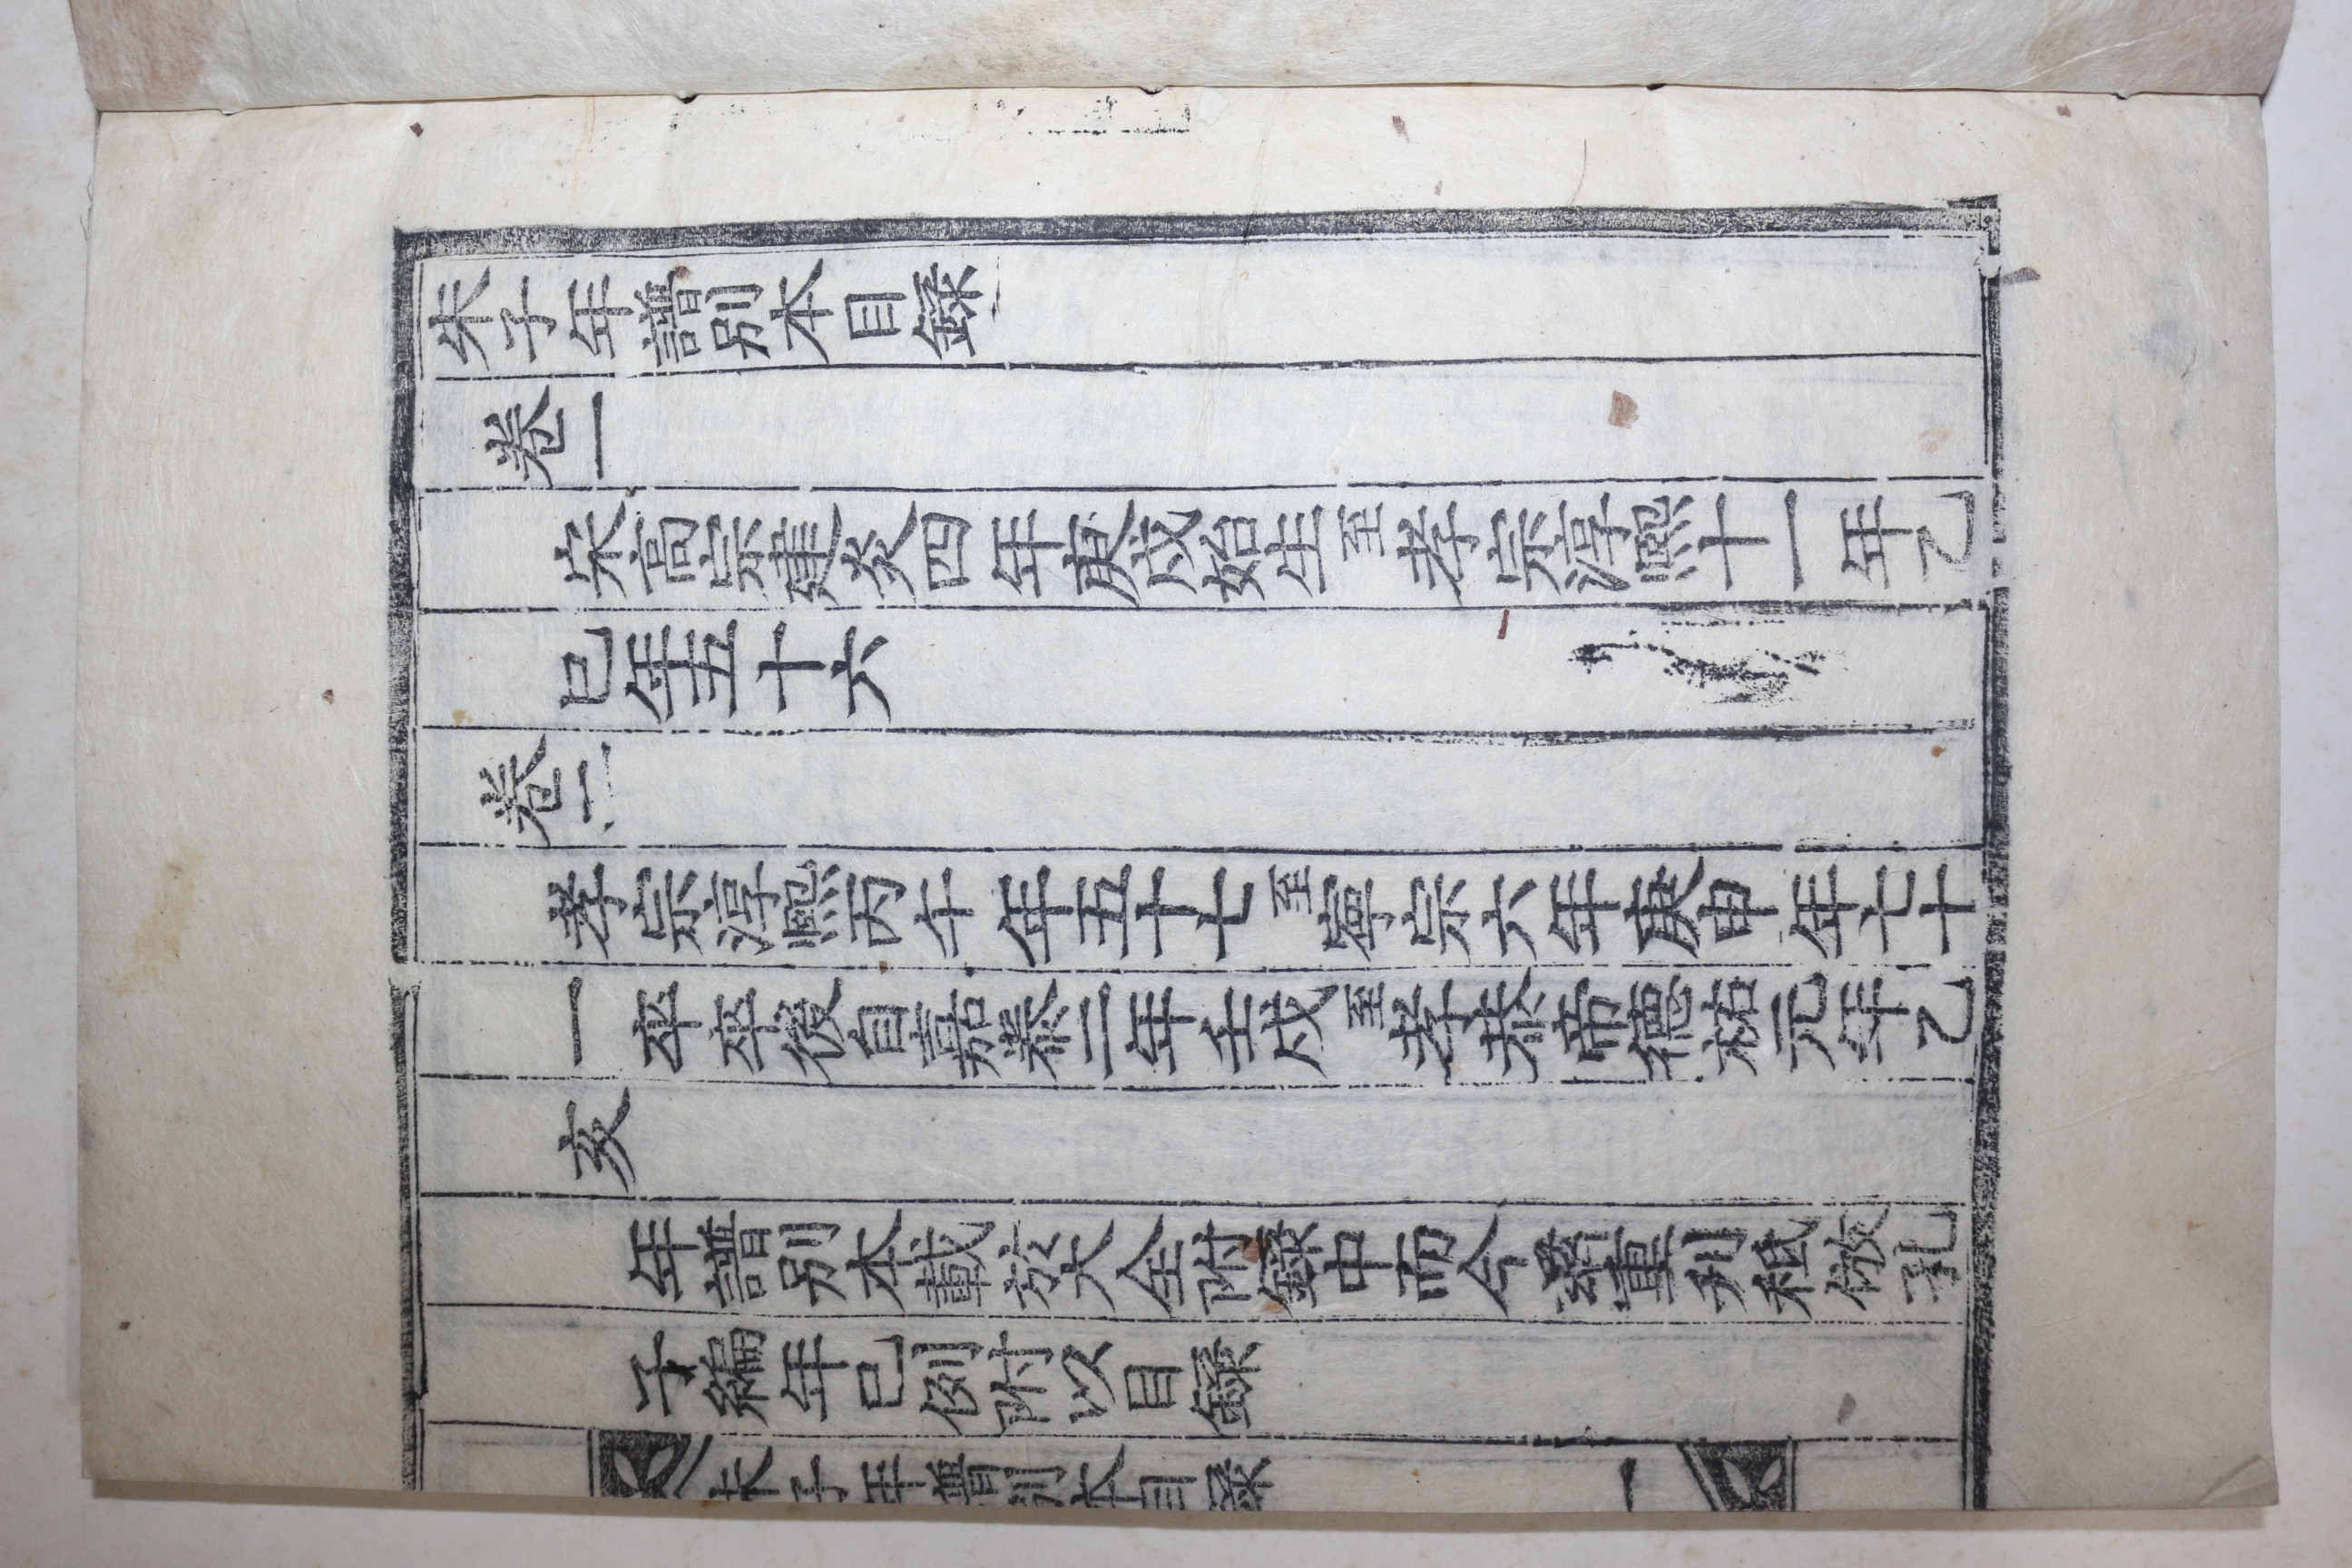 朱子年譜別本目錄
卷一
宋高宗建炎四年庚戌始生至孝宗淳熙十一年乙
巳年五十六
卷二
孝宗淳熙丙午年五十七至寧宗六年庚申年七十
一卒卒後自嘉泰二年壬戌至孝恭帝德祐元年乙
亥
年譜別本載於大全附錄中而今重刋秪倣孔
子編年已例附以目錄
朱子年譜別本目錄 一